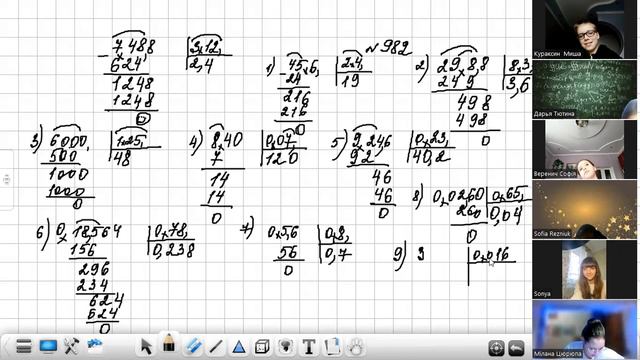 7,488 | 3,12
624 | 2,4
1248
1248
0
№982
1) 45,6 | 2,4
24 | 19
216
216
0
2) 29,8,8 | 8,3
249 | 3,6
498
498
0
3) 6000, | 1,25,
500 | 48
1000
1000
0
4) 8,40 | 0,07
7 | 120
14
14
0
5) 9,246 | 0,23,
92 | 40,2
46
46
0
6) 0,18,564 | 0,78,
156 | 0,238
296
234
624
624
0
7) 0,5,6 | 0,8,
56 | 0,7
0
8) 0,0260 | 0,65,
260 | 0,04
0
9) 3 | 0,016
Кураксин Миша
Дарья Тютина
Веренич Софія
Sofia Rezniuk
Sonya
Мілана Цюрюпа